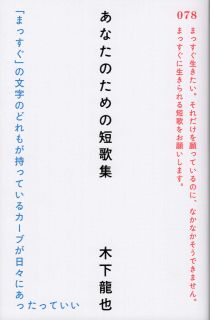 078
まっすぐ生きたい。それだけを願っているのに、なかなかそうできません。
まっすぐに生きられる短歌をお願いします。
あなたのための短歌集
木下龍也
「まっすぐ」の文字のどれもが持っているカーブが日々にあ
ったっていい